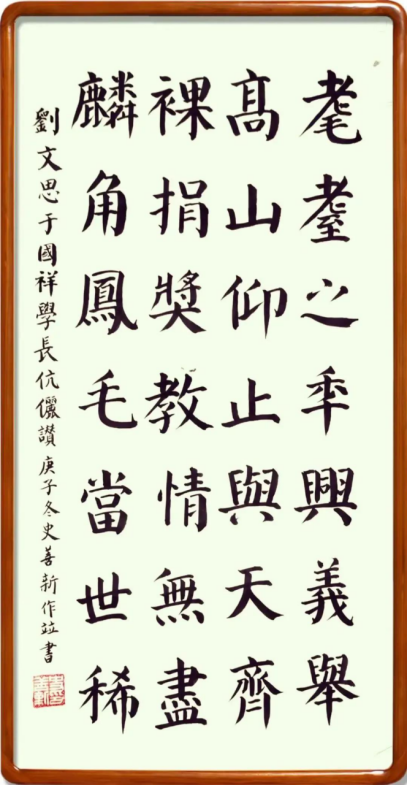 耄耋之年興義舉
髙山仰止與天齊
裸捐獎教情無盡
麟角鳳毛當世稀
劉文思于國祥學長伉儷讚 庚子冬史善新作竝書